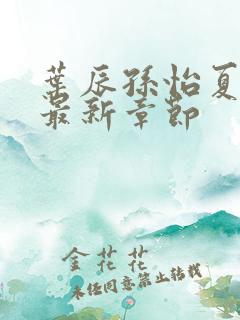 叶辰孙怡夏
最新章节
金花花
未经同意禁止转载